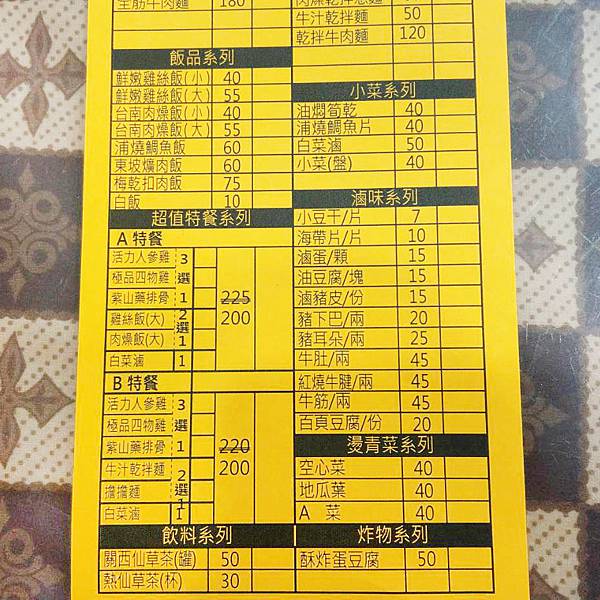 全筋牛肉麵 180
牛汁乾拌麵 50
乾拌牛肉麵 120
飯品系列
鮮嫩雞絲飯(小) 40
鮮嫩雞絲飯(大) 55
台南肉燥飯(小) 40
台南肉燥飯(大) 55
浦燒鯛魚飯 60
東坡爌肉飯 60
梅乾扣肉飯 75
白飯 10
超值特餐系列
A 特餐
活力人參雞
極品四物雞
紫山藥排骨
3選1
雞絲飯(大)
肉燥飯(大)
2選1
白菜滷 1
225
200
B 特餐
活力人參雞
極品四物雞
紫山藥排骨
3選1
牛汁乾拌麵
擔擔麵
2選1
白菜滷 1
220
200
飲料系列
關西仙草茶(罐) 50
熱仙草茶(杯) 30
小菜系列
油燜筍乾 40
浦燒鯛魚片 40
白菜滷 50
小菜(盤) 40
滷味系列
小豆干/片 7
海帶片/片 10
滷蛋/顆 15
油豆腐/塊 15
滷豬皮/份 15
豬下巴/兩 20
豬耳朵/兩 25
牛肚/兩 45
紅燒牛腱/兩 45
牛筋/兩 45
百頁豆腐/份 20
燙青菜系列
空心菜 40
地瓜葉 40
A 菜 40
炸物系列
酥炸蛋豆腐 50